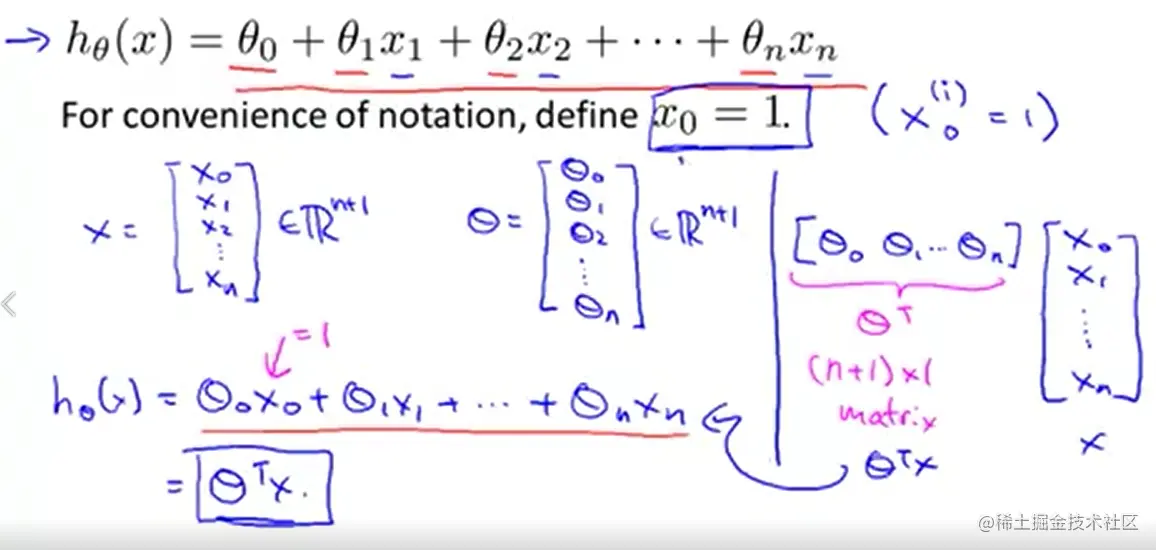 → hθ(x) = θ0 + θ1x1 + θ2x2 + ··· + θnxn
For convenience of notation, define x0 = 1. (x0^(i) = 1)
x = [x0 x1 x2 ⋮ xn] ∈ ℝ^(n+1) θ = [θ0 θ1 θ2 ⋮ θn] ∈ ℝ^(n+1)
[θ0 θ1 ··· θn] [x0 x1 ⋮ xn]
θ^T
(n+1) × 1
matrix
x
= 1
hθ(x) = θ0x0 + θ1x1 + ··· + θnxn
θ^T x
= θ^T x.
@稀土掘金技术社区